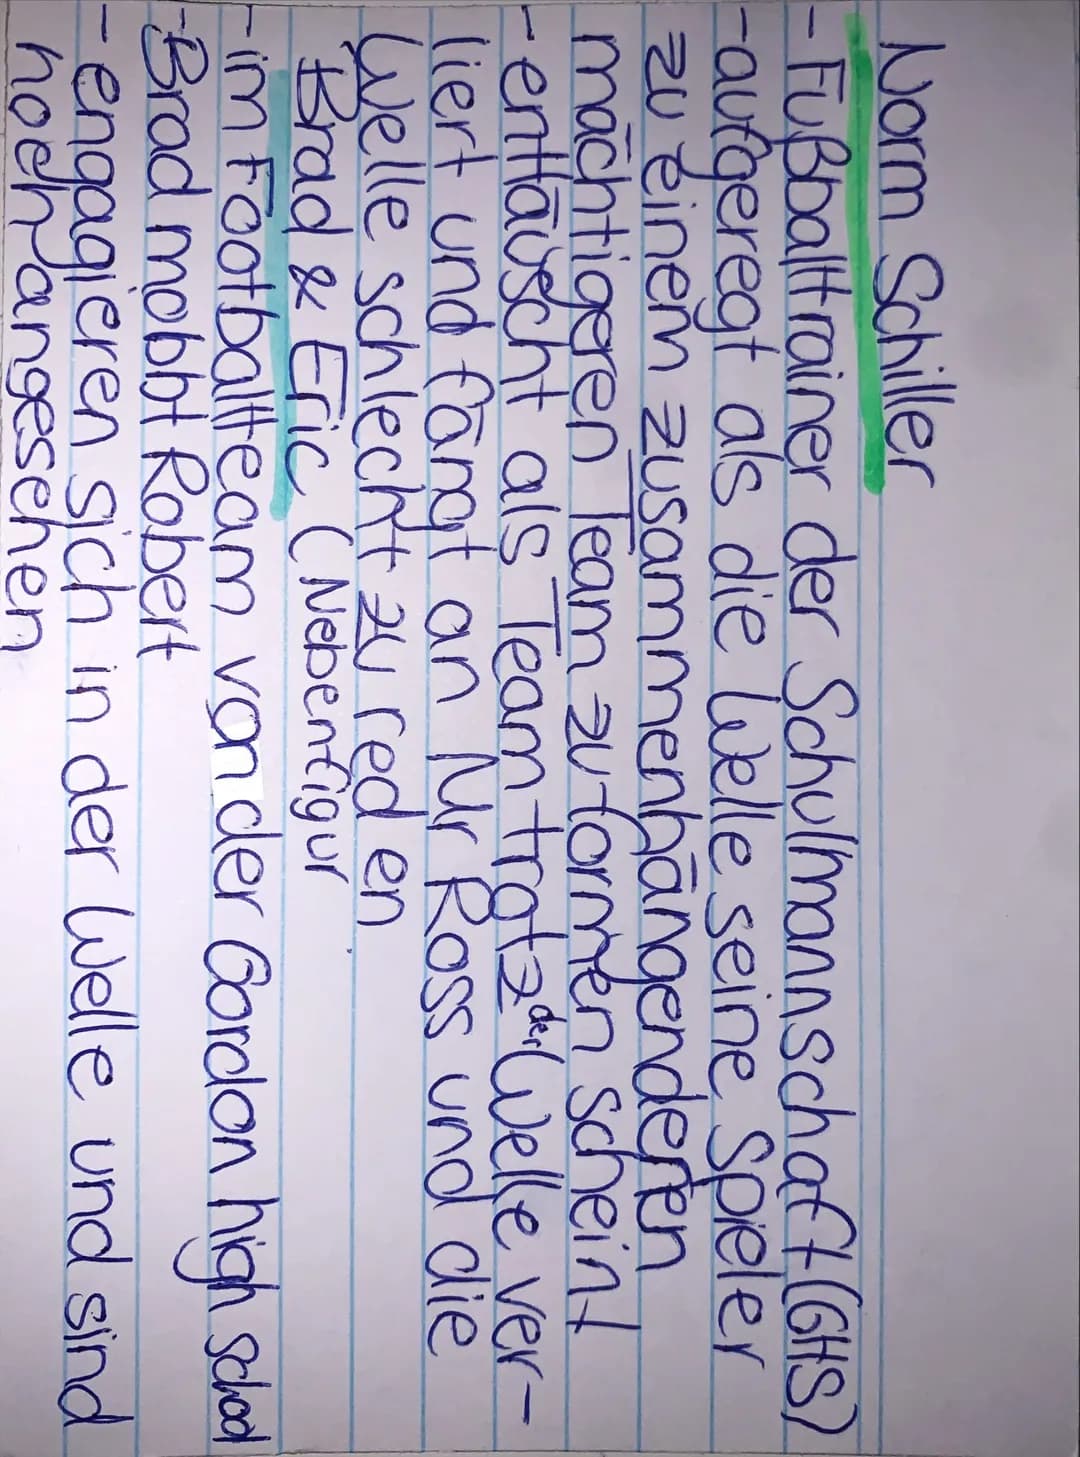 Norm Schiller
- Fußballtrainer der Schullmannschaft (GHS)
- aufgeregt als die Welle seine Spieler
zu einem zusammenhängenderen
mächtigeren Team zu formen scheint
- enttäuscht als Team trotz der Welle ver-
liert und fängt an Mr Ross und die
Welle schlecht zu reden
Brad & Eric (Nebenfigur
- im Footballteam von der Gordon high school
- Brad mobbt Robert
- engagieren sich in der Welle und sind
hoch angesehen